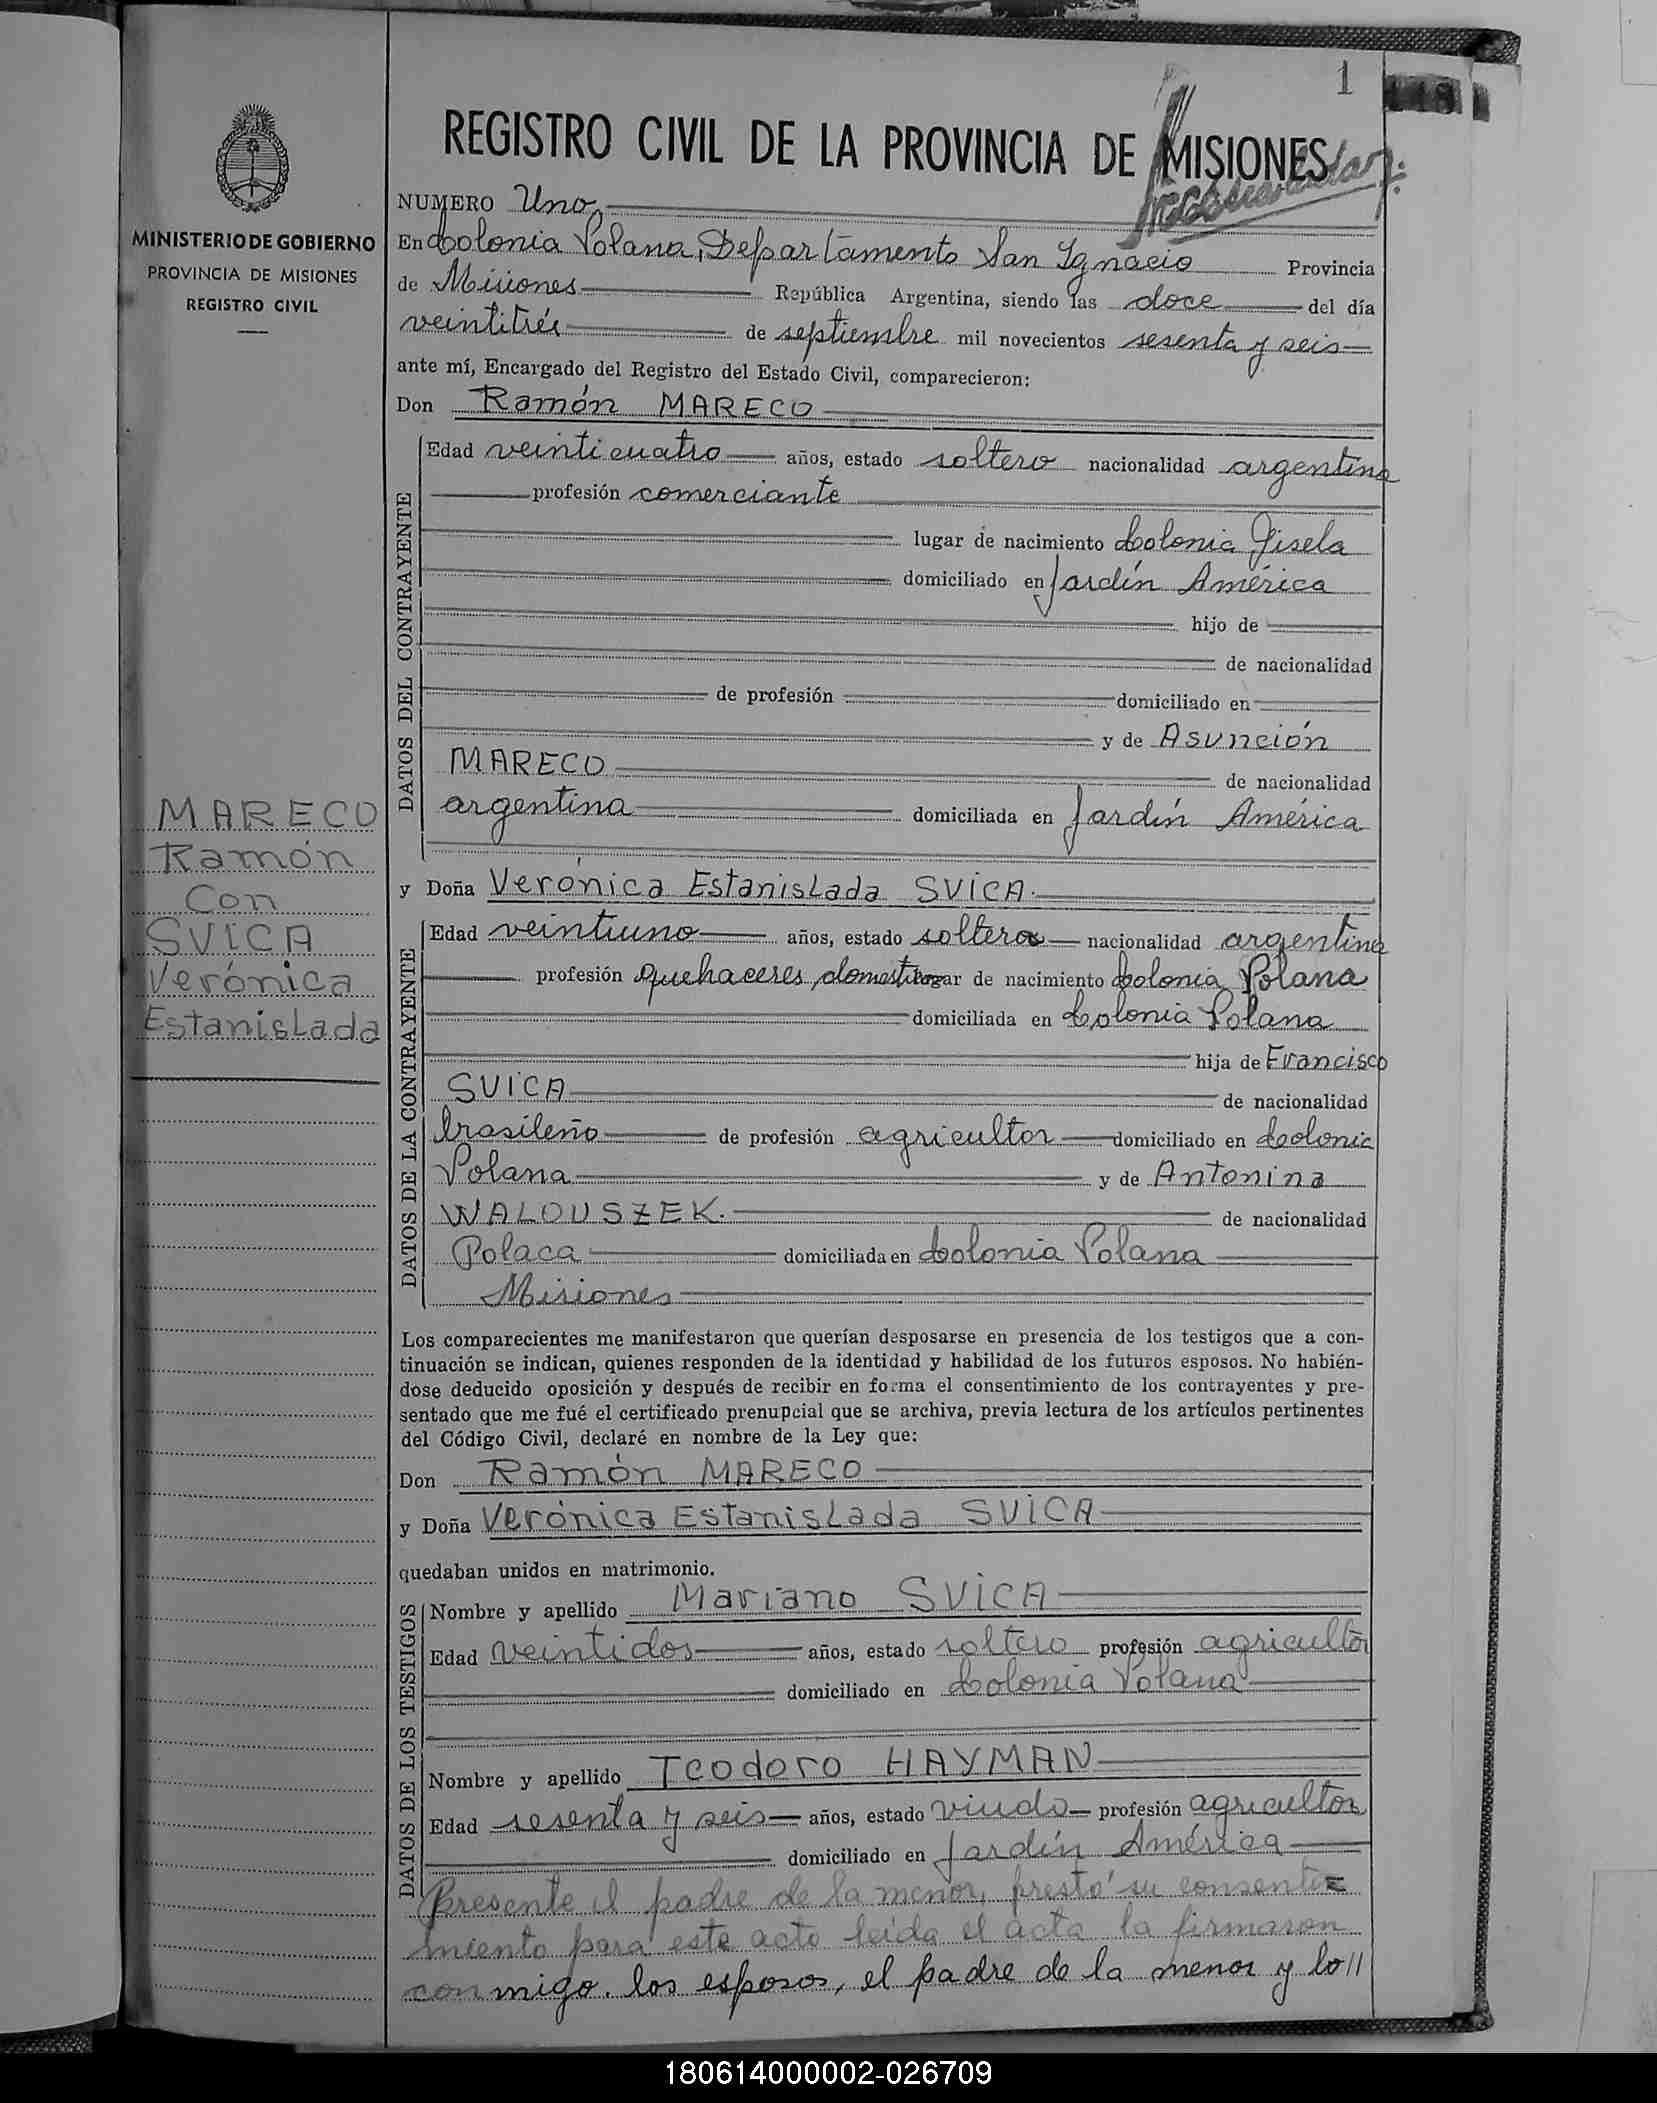 1
118
REGISTRO CIVIL DE LA PROVINCIA DE MISIONES
MINISTERIO DE GOBIERNO
PROVINCIA DE MISIONES
REGISTRO CIVIL
MARECO
Ramón
Con
SVICA
Verónica
Estanislada
NUMERO Uno
En Colonia Polana, Departamento San Ignacio Provincia
de Misiones República Argentina, siendo las doce del día
veintitrés de septiembre mil novecientos sesenta y seis
ante mí, Encargado del Registro del Estado Civil, comparecieron:
Don Ramón MARECO
DATOS DEL CONTRAYENTE
Edad veinticuatro años, estado soltero nacionalidad argentina
profesión comerciante
lugar de nacimiento Colonia Gisela
domiciliado en Jardín América
hijo de
de nacionalidad
de profesión domiciliado en
y de Asunción
MARECO de nacionalidad
argentina domiciliada en Jardín América
y Doña Verónica Estanislada SVICA
DATOS DE LA CONTRAYENTE
Edad veintiuno años, estado soltera nacionalidad argentina
profesión Quehaceres domésticos lugar de nacimiento Colonia Polana
domiciliada en Colonia Polana
hija de Francisco
SVICA de nacionalidad
brasileño de profesión agricultor domiciliado en Colonia
Polana y de Antonina
WALOUSZEK. de nacionalidad
Polaca domiciliada en Colonia Polana
Misiones
Los comparecientes me manifestaron que querían desposarse en presencia de los testigos que a con-
tinuación se indican, quienes responden de la identidad y habilidad de los futuros esposos. No habién-
dose deducido oposición y después de recibir en forma el consentimiento de los contrayentes y pre-
sentado que me fué el certificado prenupcial que se archiva, previa lectura de los artículos pertinentes
del Código Civil, declaré en nombre de la Ley que:
Don Ramón MARECO
y Doña Verónica Estanislada SVICA
quedaban unidos en matrimonio.
DATOS DE LOS TESTIGOS
Nombre y apellido Mariano SVICA
Edad veintidos años, estado soltero profesión agricultor
domiciliado en Colonia Polana
Nombre y apellido Teodoro HAYMAN
Edad sesenta y seis años, estado viudo profesión agricultor
domiciliado en Jardín América
Presente el padre de la menor, prestó su consenti=
miento para este acto leída el acta la firmaron
conmigo. los esposos, el padre de la menor y lo//
180614000002-026709